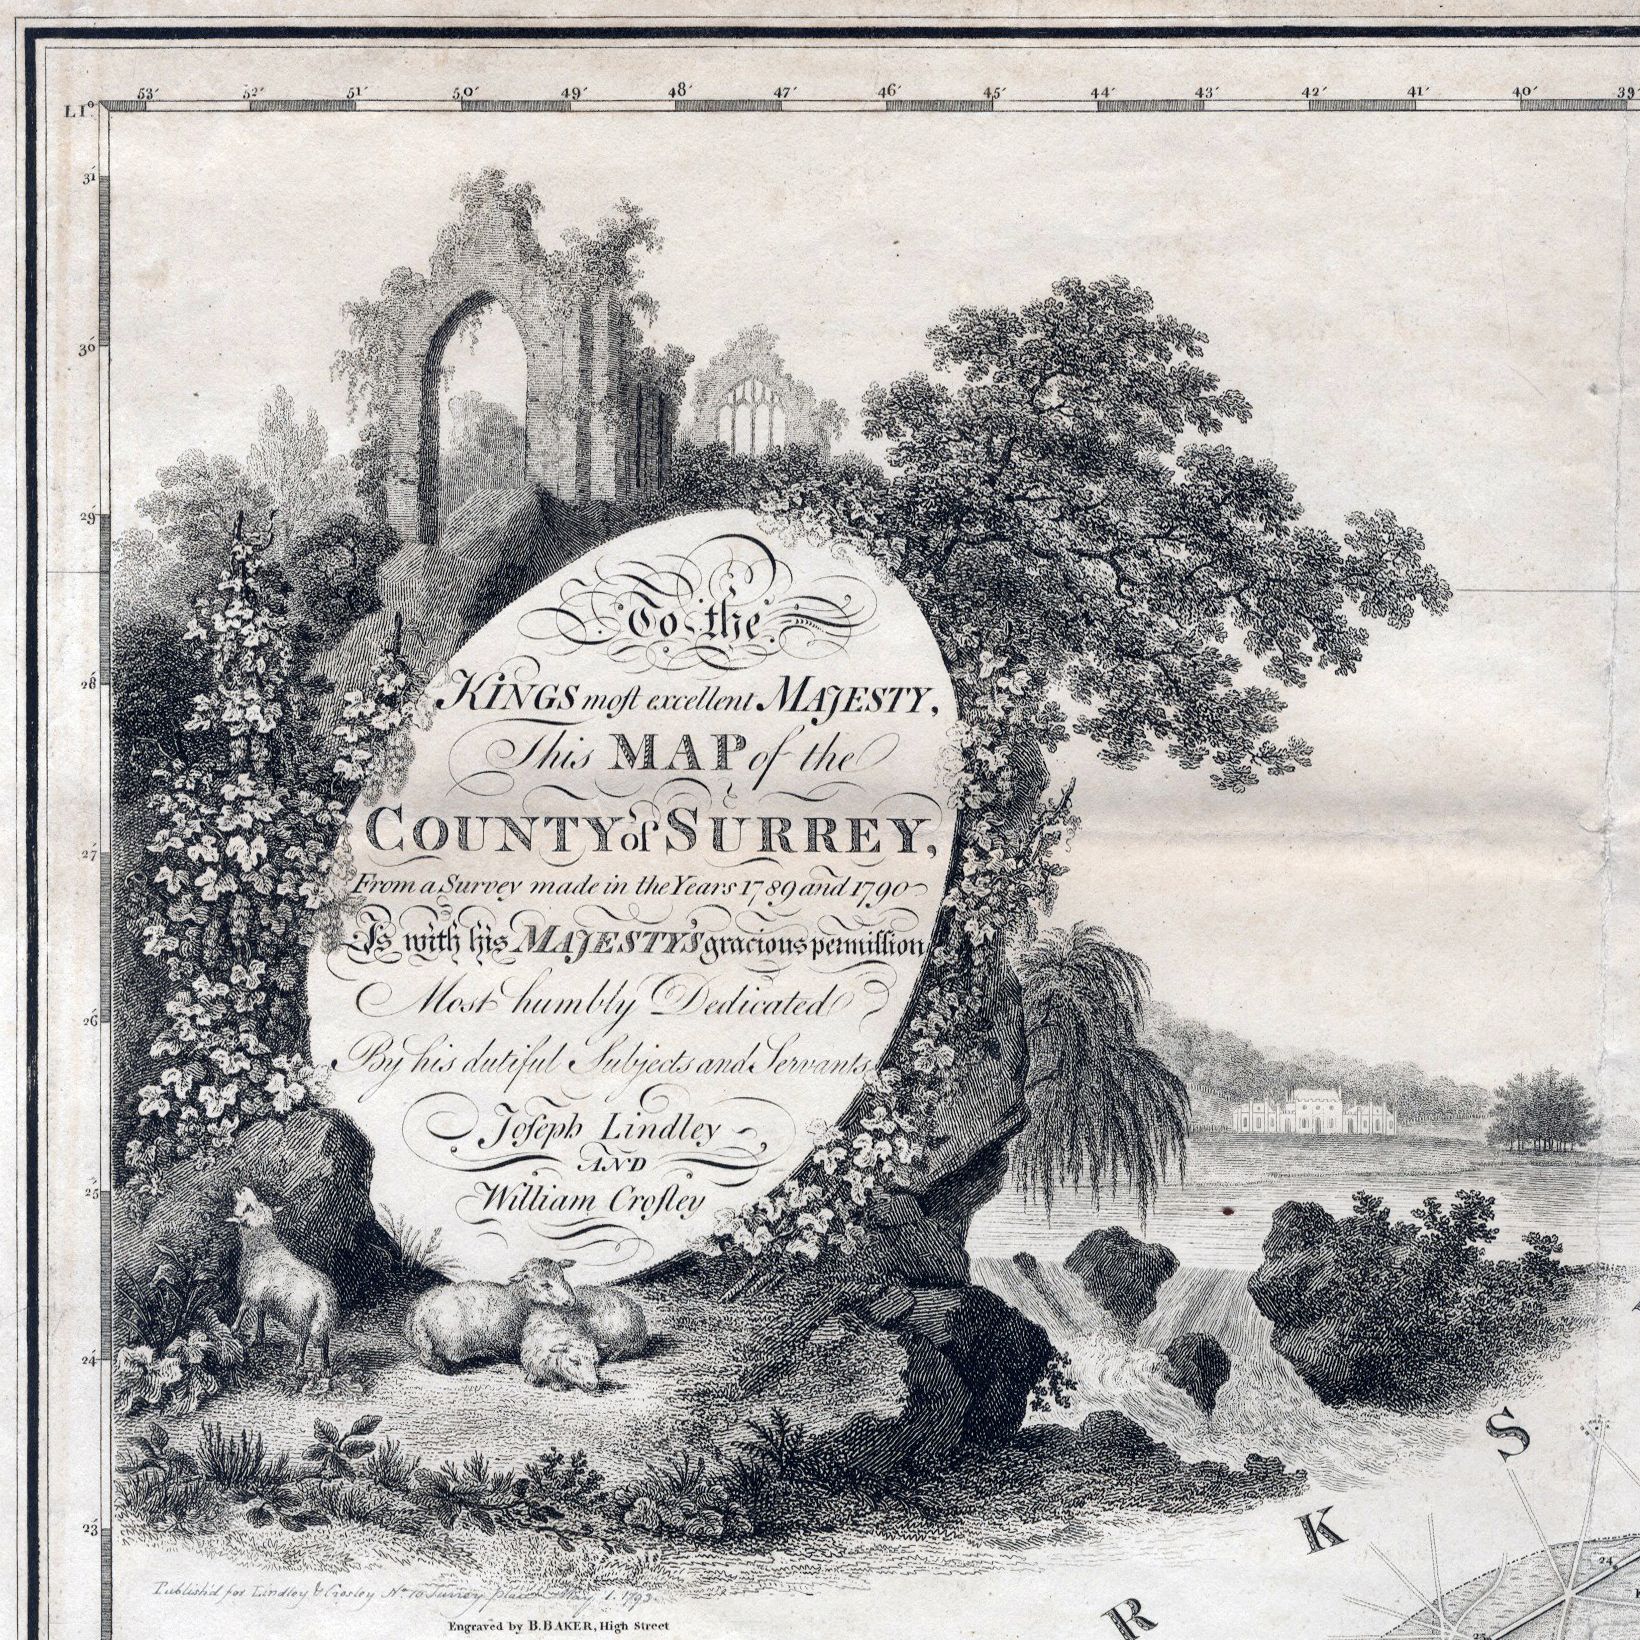 53′ 52′ 51′ 50′ 49′ 48′ 47′ 46′ 45′ 44′ 43′ 42′ 41′ 40′ 39′
LI°
31′
30′
29′
28′
27′
26′
25′
24′
23′
To the
KINGS moſt excellent MAJESTY,
This MAP of the
COUNTY of SURREY,
From a Survey made in the Years 1789 and 1790
Is with his MAJESTY'S gracious permiſſion
Most humbly Dedicated
By his dutiful Subjects and Servants
Joſeph Lindley
AND
William Croſley
S
K
R
24
25
Publish'd for Lindley & Crosley No. 70 Surrey place May 1. 1793.
Engraved by B. BAKER, High Street